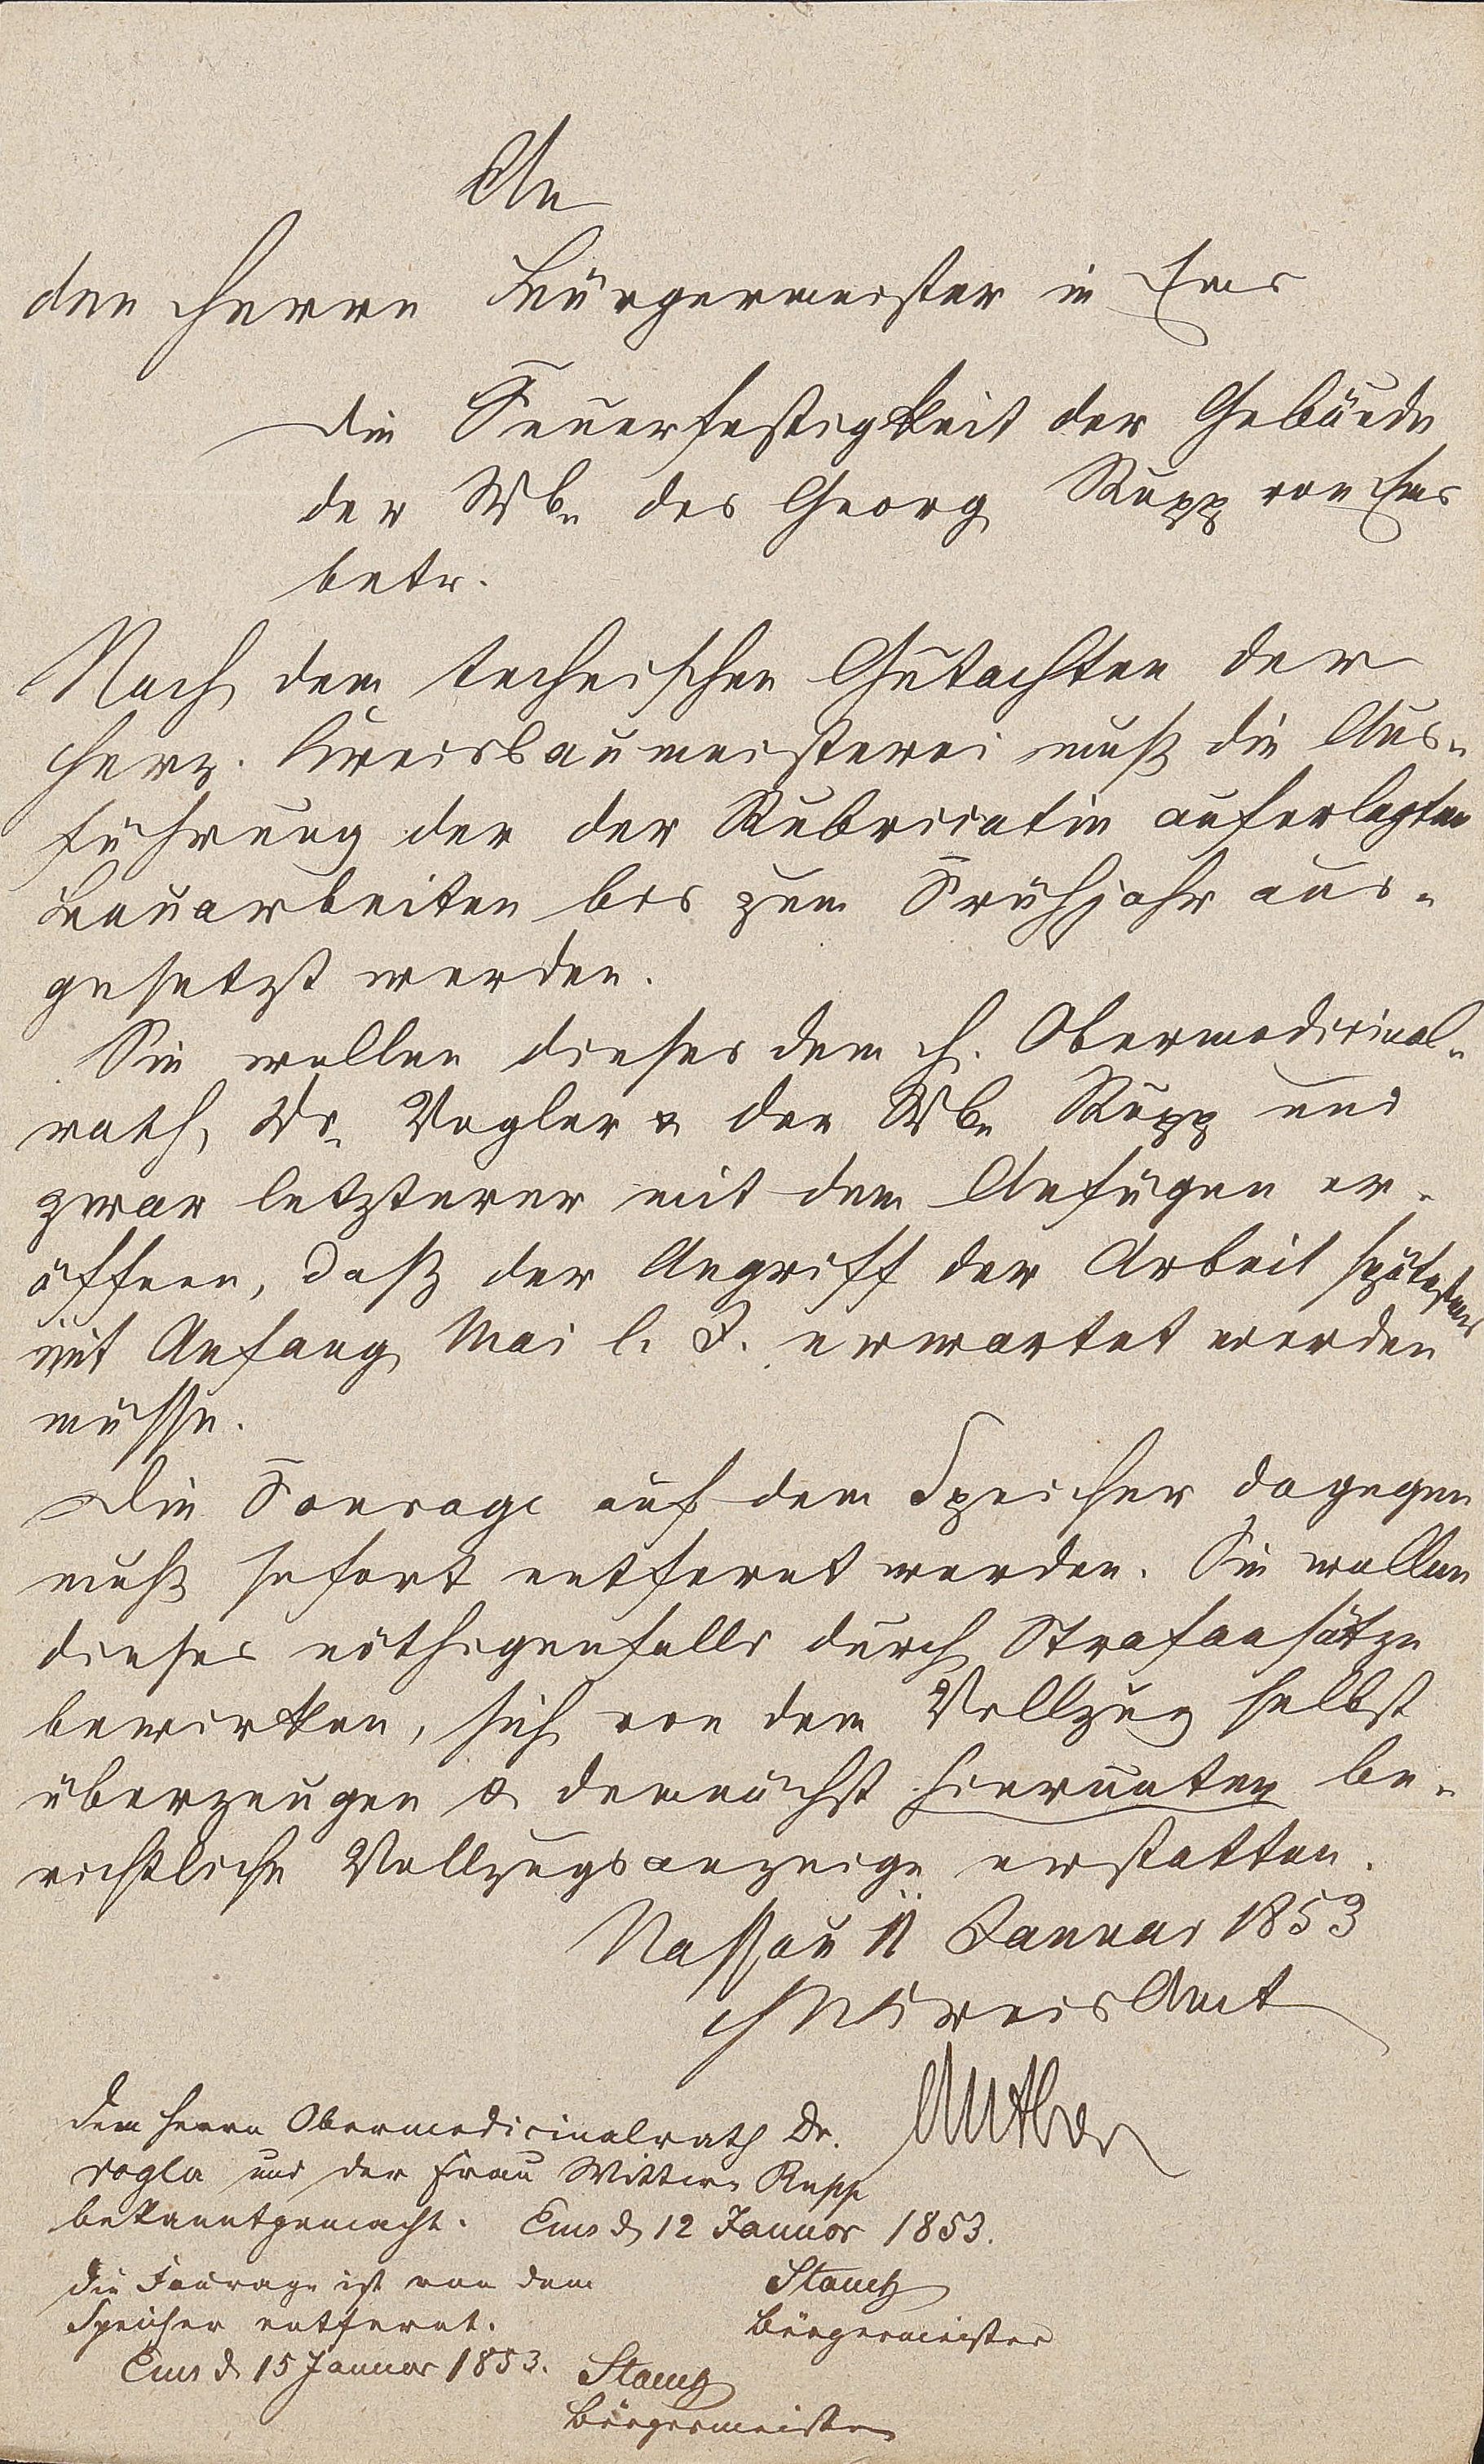 An
den Herrn Bürgermeister in Ems
Die Feuerfestigkeit der Gebäude
der Wb. des Georg Rupp von Ems
betr.
Nach dem technischen Gutachten der
Herz. Kreisbaumeisterei muß die Aus-
führung der der Rubricatin auferlegten
Bauarbeiten bis zum Frühjahr aus-
gesetzt werden.
Sie wollen dieses dem H. Obermedicinal-
rath Dr. Vogler & der Wb. Rupp und
zwar letzterer mit dem Anfügen er-
öffnen, daß der Angriff der Arbeit spätestens
mit Anfang Mai l. J. erwartet werden
müsse.
Die Fourage auf dem Speicher dagegen
muß sofort entfernt werden. Sie wollen
dieses nöthigenfalls durch Strafansätze
bewirken, sich von dem Vollzug selbst
überzeugen & demnächst hierunter be-
richtliche Vollzugsanzeige erstatten.
Nassau 11 Januar 1853
H N Kreis Amt
Dem Herrn Obermedicinalrath Dr.
Vogler und der Frau Wittwe Rupp
bekanntgemacht. Ems d 12 Januar 1853.
Die Fourage ist von dem
Speicher entfernt.
Bürgermeister
Ems d 15 Januar 1853.
Bürgermeister